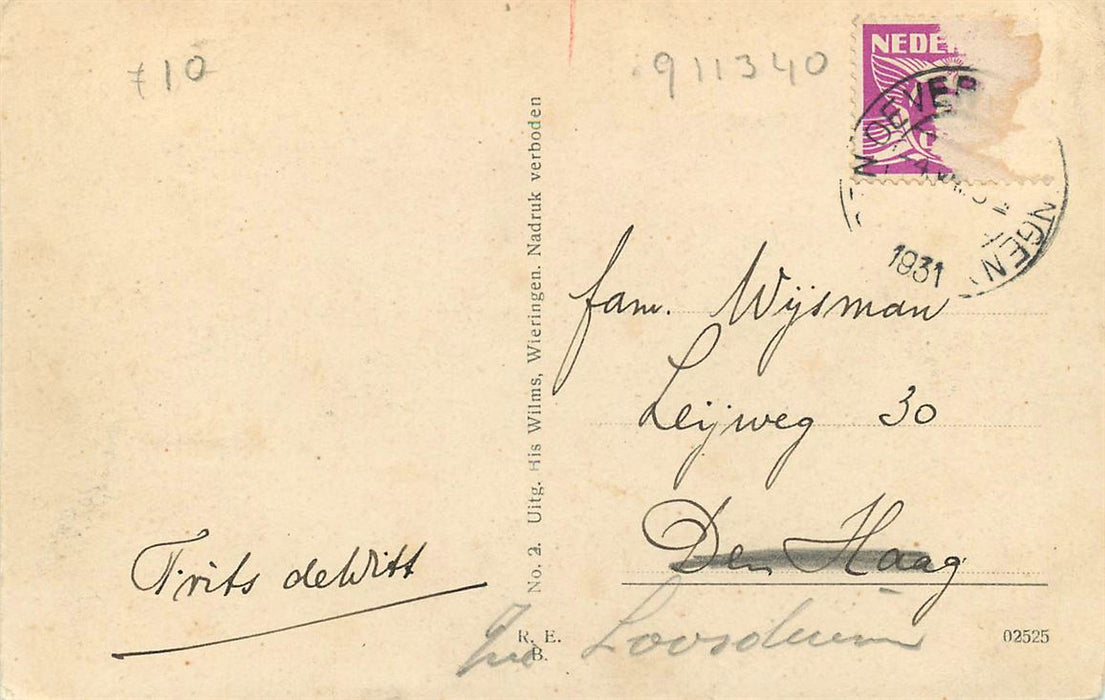 710
911340
NEDE
OEVER
NGEN
1931
No. 2. Uitg. His Wilms, Wieringen. Nadruk verboden
fam. Wijsman
Leijweg 30
Den Haag
Loosduinen
Frits de Witt
R. E.
B.
02525